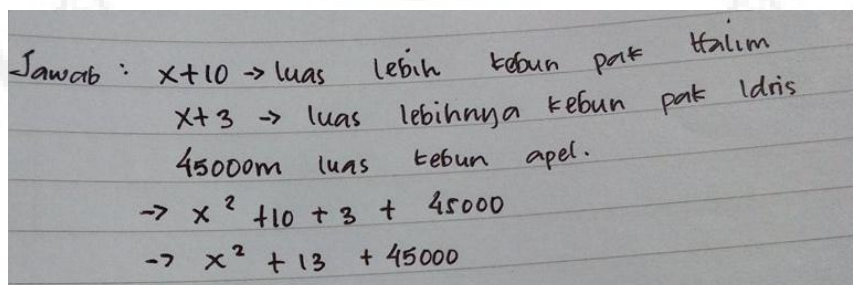 Jawab : x+10 → luas lebih kebun pak Halim
x+3 → luas lebihnya kebun pak Idris
45000m luas kebun apel.
→ x² +10 + 3 + 45000
→ x² + 13 + 45000